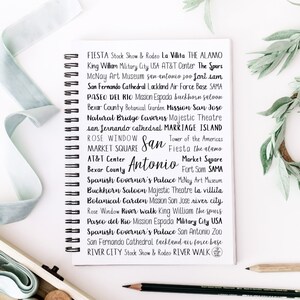 FIESTA Stock Show & Rodeo La Villita THE ALAMO
King William Military City USA AT&T Center The Spurs
McNay Art Museum san antonio zoo fort sam
San Fernando Cathedral Lackland Air Force Base SAMA
PASEO DEL RIO Mission Espada buckhorn saloon
Bexar County Botanical Garden Mission San Jose
Natural Bridge Caverns Majestic Theatre
san fernando cathedral MARRIAGE ISLAND
ROSE WINDOW San Tower of the Americas
MARKET SQUARE Fiesta the alamo
AT&T Center Antonio Market Square
Bexar County Fort Sam SAMA
Spanish Governor's Palace McNay Art Museum
Buckhorn Saloon Majestic Theatre la villita
Botanical Garden Mission San Jose river city
Rose Window River walk King William the spurs
Paseo del Rio Mission Espada Military City USA
Spanish Governor's Palace San Antonio Zoo
San Fernando Cathedral lackland air force base
RIVER CITY Stock Show & Rodeo RIVER WALK